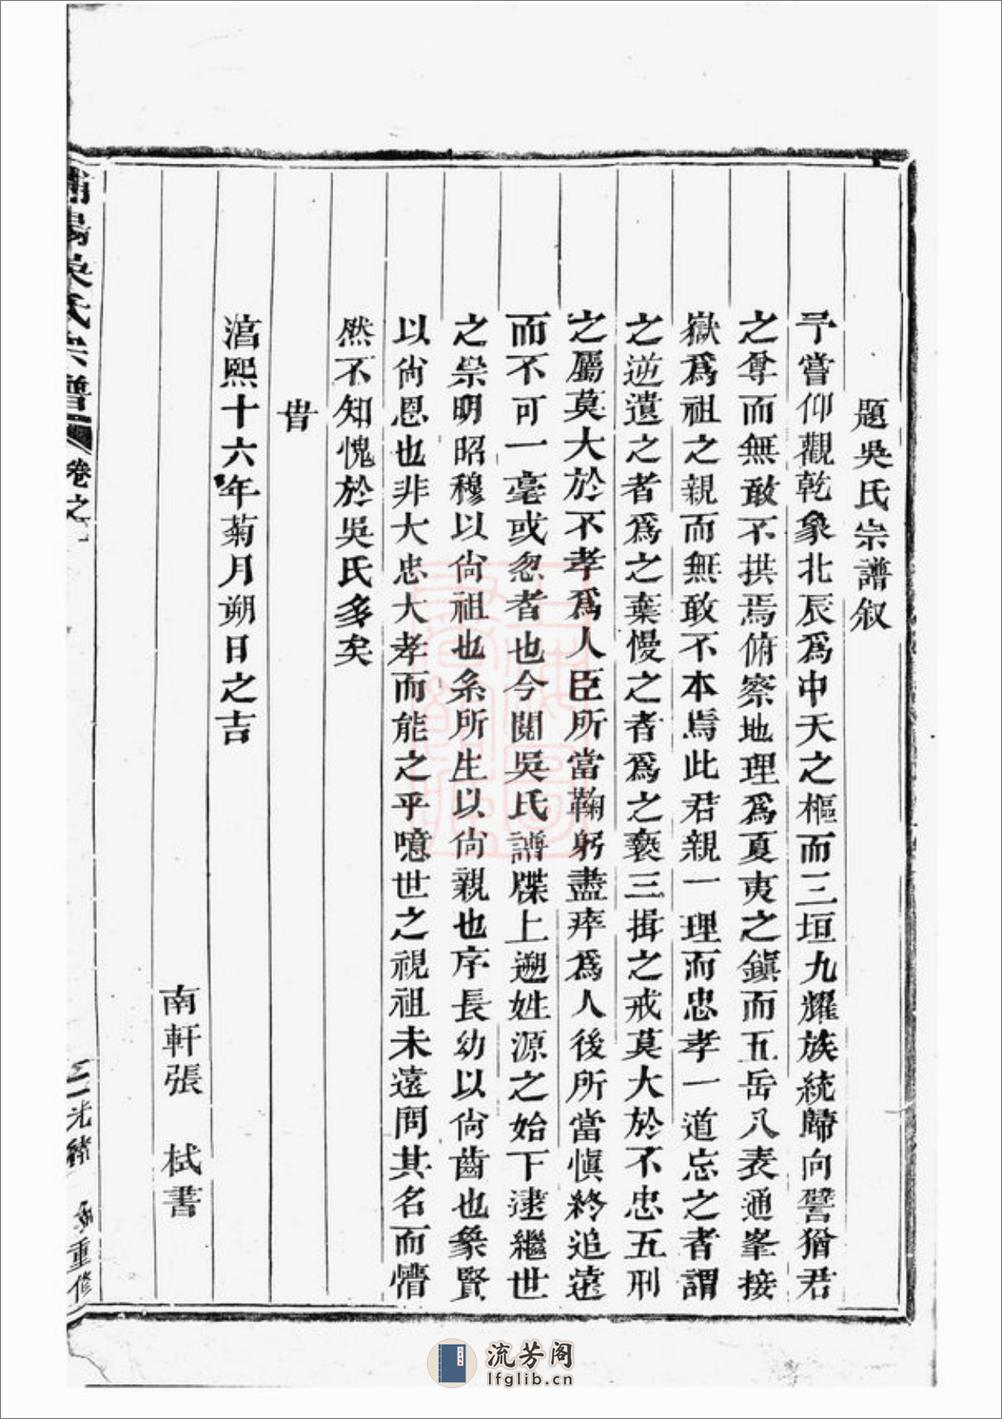 題吳氏宗譜叙
予嘗仰觀乾象北辰爲中天之樞而三垣九耀族統歸向譬猶君
之尊而無敢不拱焉俯察地理爲夏夷之鎮而五岳八表通峯接
嶽爲祖之親而無敢不本焉此君親一理而忠孝一道忘之者謂
之逆遺之者爲之棄慢之者爲之褻三揖之戒莫大於不忠五刑
之屬莫大於不孝爲人臣所當鞠躬盡瘁爲人後所當慎終追遠
而不可一毫或忽者也今閱吳氏譜牒上遡姓源之始下逮繼世
之宗明昭穆以尙祖也系所生以尙親也序長幼以尙齒也象賢
以尙恩也非大忠大孝而能之乎噫世之視祖未遠問其名而懵
然不知愧於吳氏多矣
旹
湻熙十六年菊月朔日之吉
南軒張 栻書
陽吳氏宗譜 卷之
光緒 重修
流芳阁
lfglib.cn